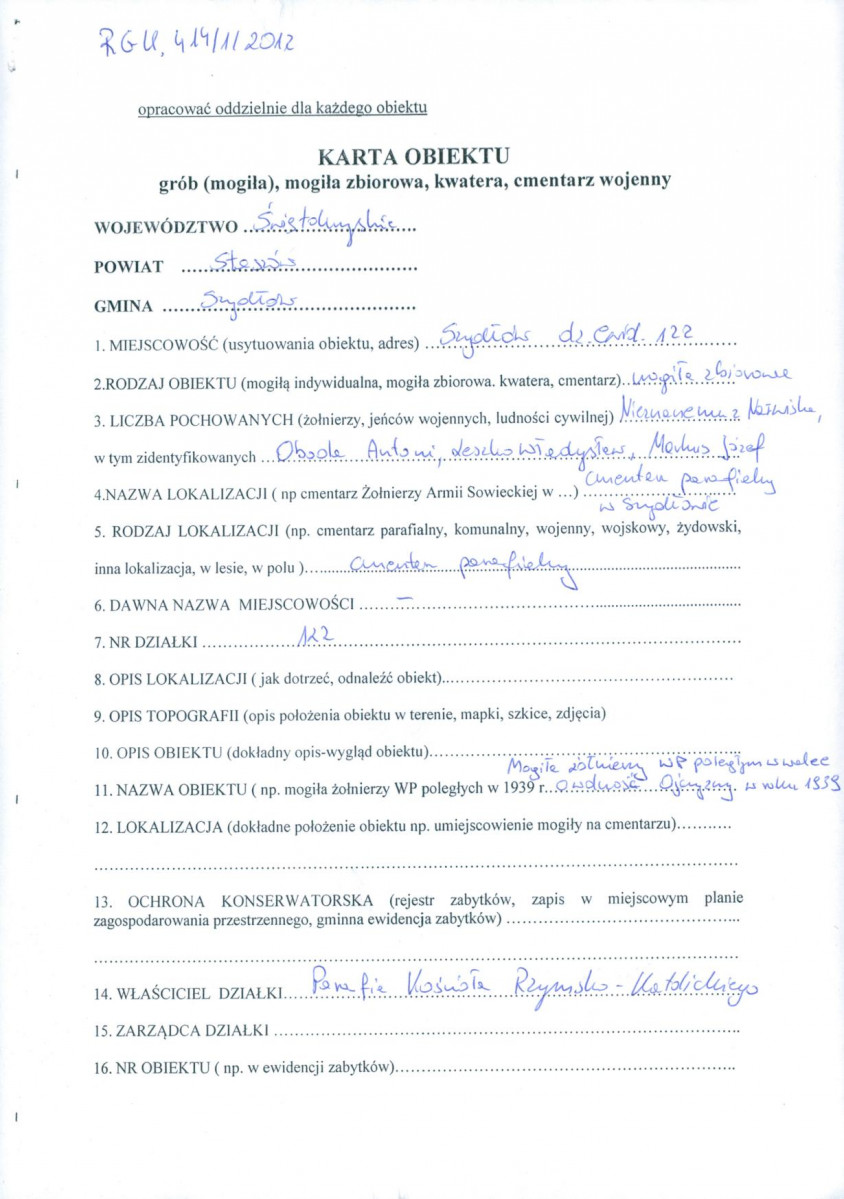 RGK, 414/1/2012
opracować oddzielnie dla każdego obiektu
KARTA OBIEKTU
grób (mogiła), mogiła zbiorowa, kwatera, cmentarz wojenny
WOJEWÓDZTWO Świętokrzyskie
POWIAT Staszów
GMINA Szydłów
1. MIEJSCOWOŚĆ (usytuowania obiektu, adres) Szydłów dz. ewid. 122
2.RODZAJ OBIEKTU (mogiłą indywidualna, mogiła zbiorowa. kwatera, cmentarz)..mogiła zbiorowa
3. LICZBA POCHOWANYCH (żołnierzy, jeńców wojennych, ludności cywilnej) Nieznanemu z Nazwiska,
w tym zidentyfikowanych Antoni, Leszko Władysław, Markus Józef
4.NAZWA LOKALIZACJI ( np cmentarz Żołnierzy Armii Sowieckiej w ...) cmentarz parafialny
w Szydłowie
5. RODZAJ LOKALIZACJI (np. cmentarz parafialny, komunalny, wojenny, wojskowy, żydowski,
inna lokalizacja, w lesie, w polu ) cmentarz parafialny
6. DAWNA NAZWA MIEJSCOWOŚCI –
7. NR DZIAŁKI 122
8. OPIS LOKALIZACJI ( jak dotrzeć, odnaleźć obiekt)
9. OPIS TOPOGRAFII (opis położenia obiektu w terenie, mapki, szkice, zdjęcia)
10. OPIS OBIEKTU (dokładny opis-wygląd obiektu)
Mogiła żołnierzy WP poległym w walce
11. NAZWA OBIEKTU ( np. mogiła żołnierzy WP poległych w 1939 r. o wolność Ojczyzny. w roku 1939
12. LOKALIZACJA (dokładne położenie obiektu np. umiejscowienie mogiły na cmentarzu)
13. OCHRONA KONSERWATORSKA (rejestr zabytków, zapis w miejscowym planie
zagospodarowania przestrzennego, gminna ewidencja zabytków)
14. WŁAŚCICIEL DZIAŁKI Parafia Kościoła Rzymsko-Katolickiego
15. ZARZĄDCA DZIAŁKI
16. NR OBIEKTU ( np. w ewidencji zabytków)